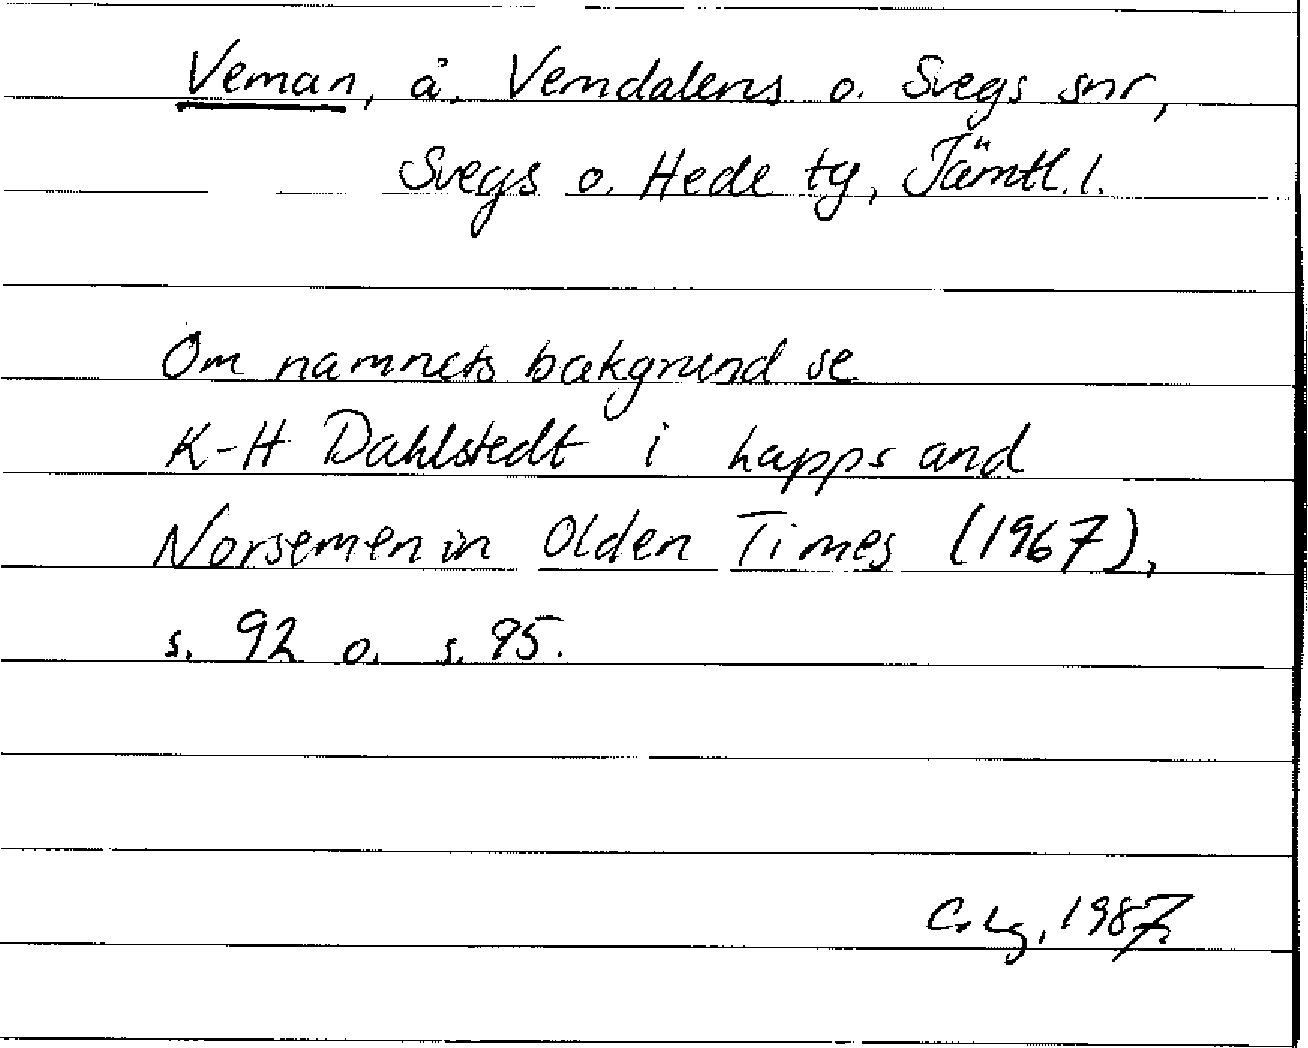 Veman, å. Vemdalens o. Svegs snr,
Svegs o. Hede tg, Jämtl. l.
Om namnets bakgrund se
K-H Dahlstedt i Lapps and
Norsemen in Olden Times (1967),
s. 92 o. s. 95.
C. Lg, 1987.